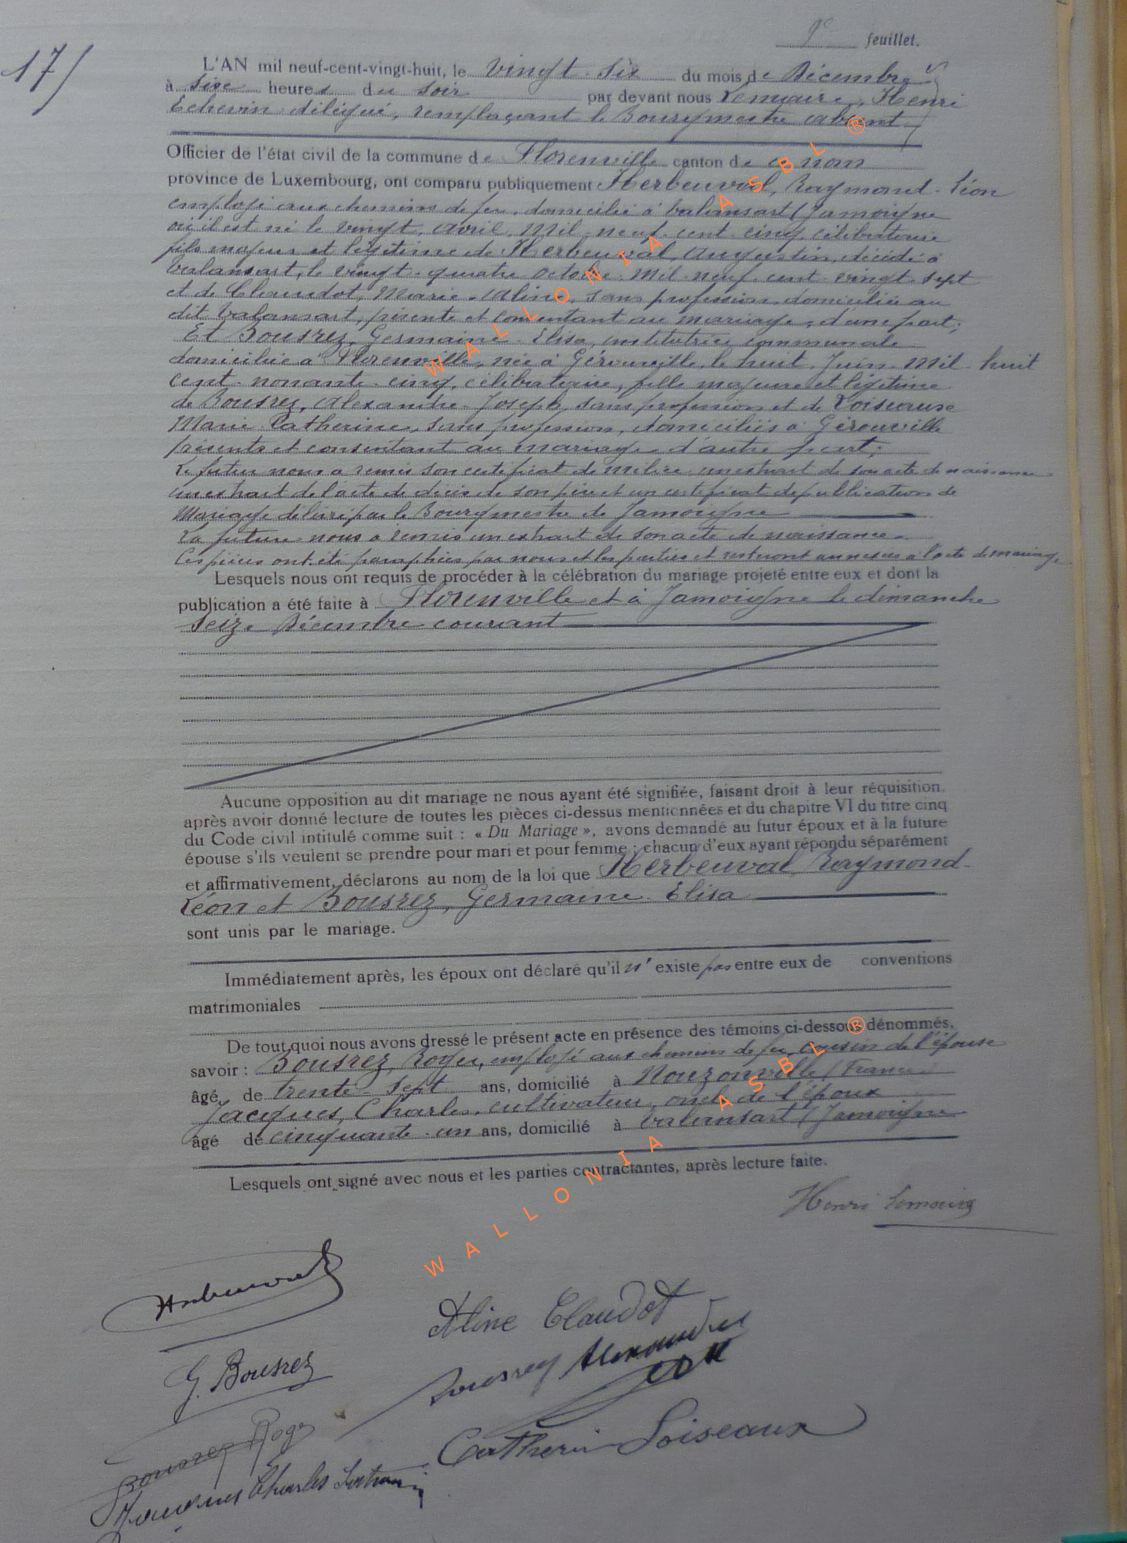 9e feuillet.
17/
L'AN mil neuf-cent-vingt-huit, le vingt-six du mois de Décembre
à six heures du soir par devant nous Lemaire, Henri
Echevin délégué, remplaçant le Bourgmestre absent
Officier de l'état civil de la commune de Florenville canton de ce nom
province de Luxembourg, ont comparu publiquement Herbeuval, Raymond-Léon
employé aux chemins de fer, domicilié à Valansart (Jamoigne
où il est né le vingt avril mil neuf cent cinq, célibataire
fils majeur et légitime de Herbeuval, Augustin, décédé à
Valansart, le vingt-quatre octobre mil neuf cent vingt-sept
et de Claudot, Marie-Aline, sans profession domiciliée au
dit Valansart, présente et consentant au mariage, d'une part;
Et Bousrez, Germaine-Elisa, institutrice communale
domiciliée à Florenville, née à Gérouville, le huit Juin mil huit
cent nonante-cinq, célibataire, fille majeure et légitime
de Bousrez, Alexandre-Joseph, sans profession et de Loiseaux
Marie-Catherine, sans profession, domiciliés à Gérouville
présents et consentant au mariage d'autre part;
Le futur nous a remis son certificat de milice, un extrait de son acte de naissance
un extrait de l'acte de décès de son père et un certificat de publication de
Mariage délivré par le Bourgmestre de Jamoigne
La future nous a remis un extrait de son acte de naissance.
Ces pièces ont été paraphées par nous et les parties et resteront annexées à l'acte de mariage.
Lesquels nous ont requis de procéder à la célébration du mariage projeté entre eux et dont la
publication a été faite à Florenville et à Jamoigne le dimanche
seize Décembre courant
Aucune opposition au dit mariage ne nous ayant été signifiée, faisant droit à leur réquisition,
après avoir donné lecture de toutes les pièces ci-dessus mentionnées et du chapitre VI du titre cinq
du Code civil intitulé comme suit : « Du Mariage », avons demandé au futur époux et à la future
épouse s'ils veulent se prendre pour mari et pour femme ; chacun d'eux ayant répondu séparément
et affirmativement, déclarons au nom de la loi que Herbeuval, Raymond-
Léon et Bousrez, Germaine-Elisa
sont unis par le mariage.
Immédiatement après, les époux ont déclaré qu'il n'existe pas entre eux de conventions
matrimoniales
De tout quoi nous avons dressé le présent acte en présence des témoins ci-dessous dénommés,
savoir : Bousrez, Roger, employé aux chemins de fer, cousin de l'épouse
âgé de trente-sept ans, domicilié à Nouzonville (France)
Jacques, Charles, cultivateur, oncle de l'époux
âgé de cinquante-un ans, domicilié à Valansart (Jamoigne
Lesquels ont signé avec nous et les parties contractantes, après lecture faite.
Henri Lemaire
Herbeuval
Aline Claudot
G. Bousrez
Bousrez Alexandre
Bousrez Roger
Catherin Loiseaux
Charles
WALLONIA ASBL ®
WALLONIA ASBL ®